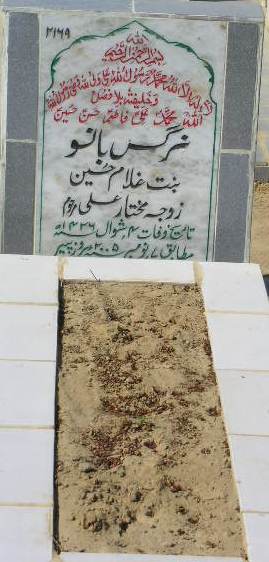 ۲۱۶۹
بسم اللہ الرحمن الرحیم
لا الہ الا اللہ محمد رسول اللہ علی ولی اللہ وصی رسول اللہ
وخلیفتہ بلا فصل
اللہ محمد علی فاطمہ حسن حسین
نرگس بانو
بنت غلام حسین
زوجہ مختار علی مرحوم
تاریخ وفات ۴ شوال ۱۴۲۶ھ
مطابق ۷ نومبر ۲۰۰۵ء بروز پیر